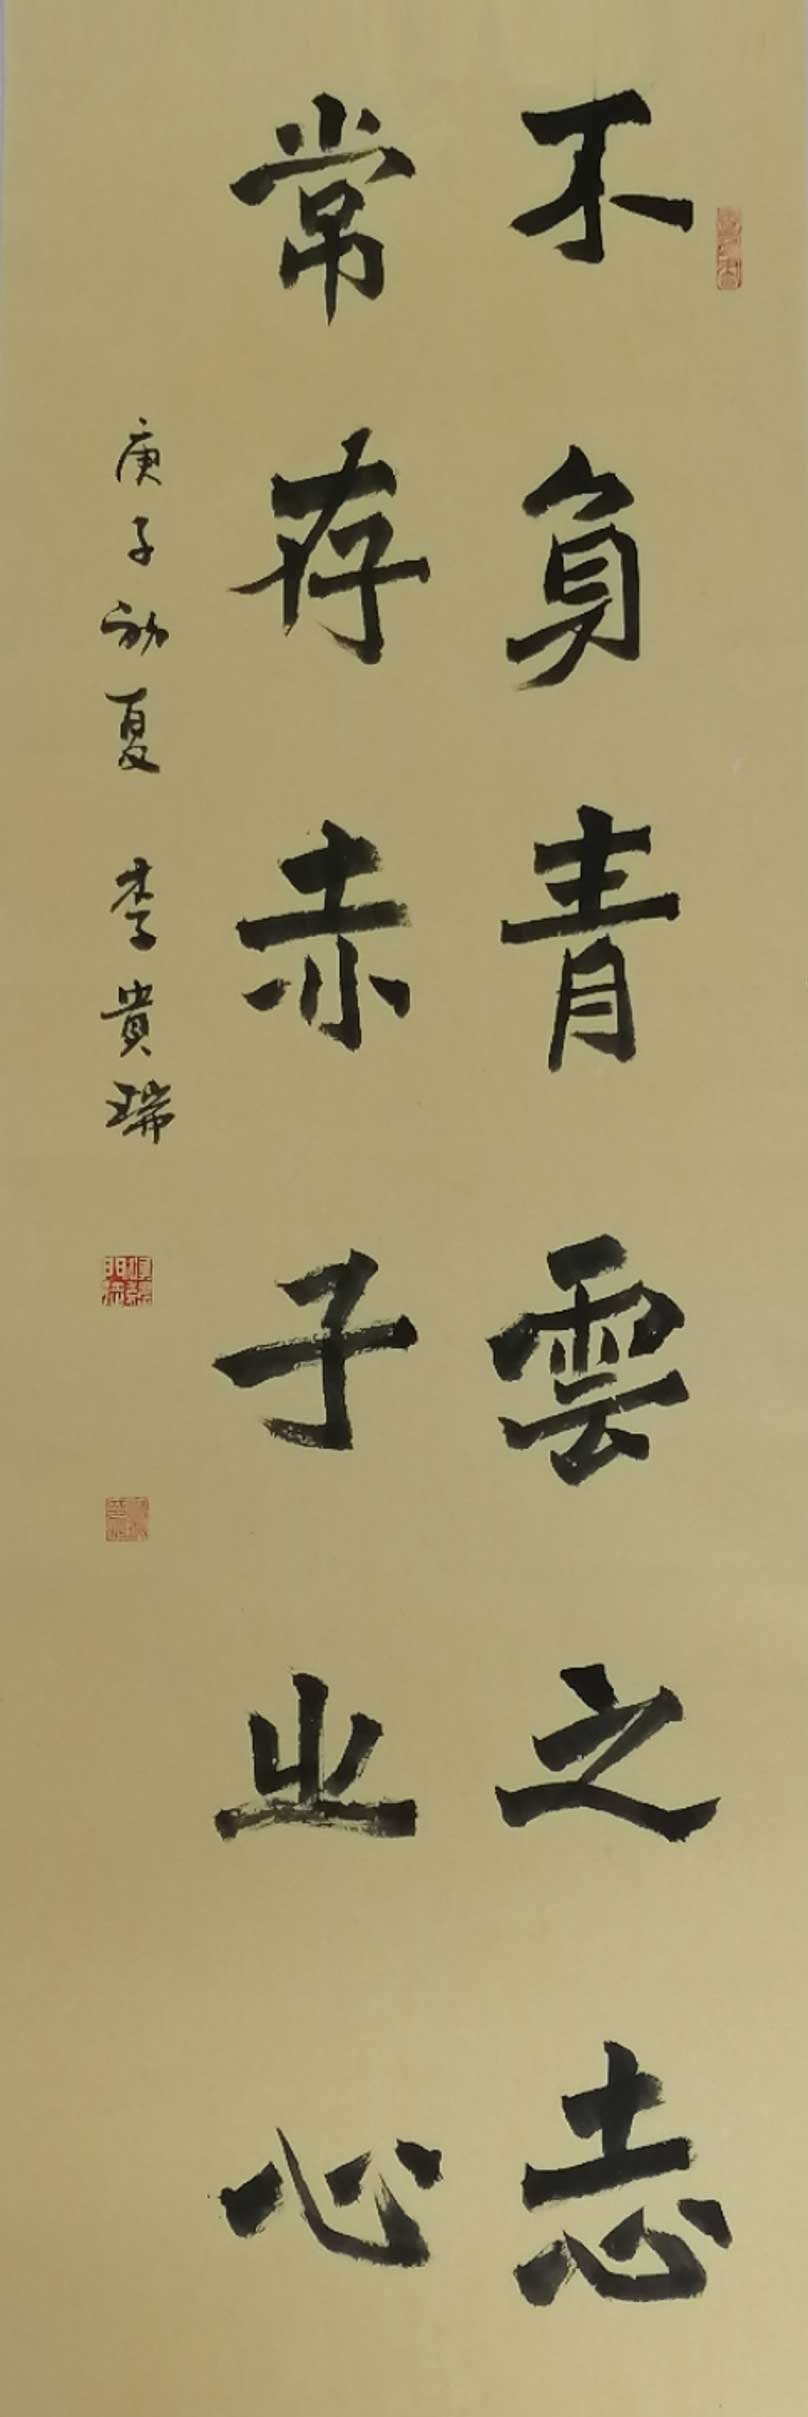 不負青雲之志
常存赤子之心
庚子初夏 李貴瑞